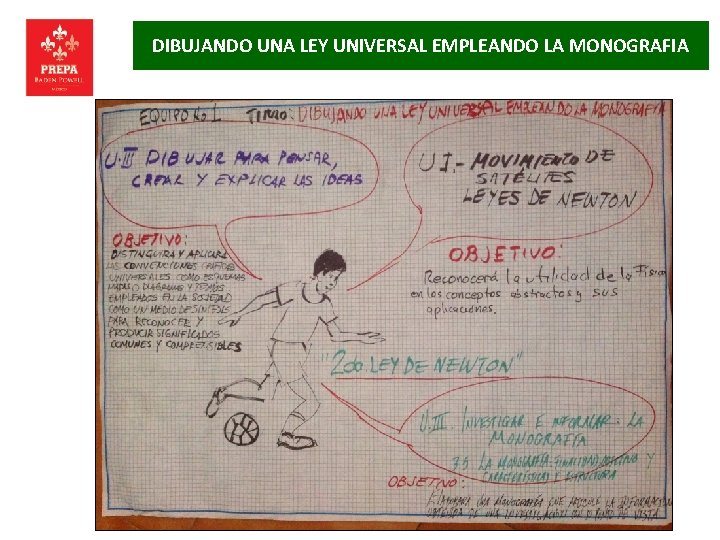 DIBUJANDO UNA LEY UNIVERSAL EMPLEANDO LA MONOGRAFIA
PREPA
BADEN POWELL
MÉXICO
EQUIPO No 1 TITULO: DIBUJANDO UNA LEY UNIVERSAL EMPLEANDO LA MONOGRAFIA
U.III DIBUJAR PARA PENSAR,
CREAR Y EXPLICAR LAS IDEAS
U I.- MOVIMIENTO DE
SATÉLITES
LEYES DE NEWTON
OBJETIVO:
DISTINGUIRA Y APLICARA
LAS CONVENCIONES GRAFICAS
UNIVERSALES COMO ESQUEMAS
MAPAS O DIAGRAMAS Y
EMPLEADOS EN LA SOCIEDAD
COMO UN MEDIO DE SINTESIS
PARA RECONOCER Y
PRODUCIR SIGNIFICADOS
COMUNES Y COMPRENSIBLES
OBJETIVO:
Reconocerá la utilidad de la Física
en los conceptos abstractos y sus
aplicaciones.
"2da. LEY DE NEWTON"
U.III. INVESTIGAR E INFORMAR: LA
MONOGRAFÍA
3.5 LA MONOGRAFIA: Y
CARACTERÍSTICAS E ESTRUCTURA
OBJETIVO:
ELABORARA UNA MONOGRAFÍA QUE LA INFORMACION
DE UNA INVESTIGACION PUNTO DE VISTA